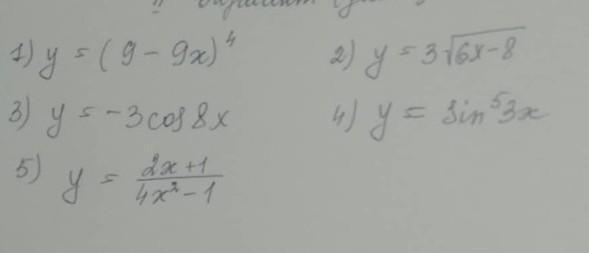 1) y = (9 - 9x)^4
2) y = 3√(6x-8)
3) y = -3cos8x
4) y = sin^5 3x
5) y = (2x+1)/(4x^2-1)